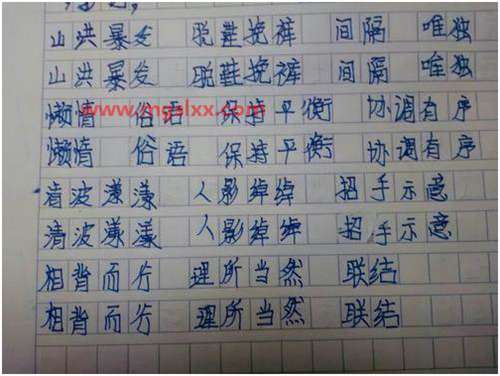 山洪暴发 脱鞋挽裤 间隔 唯独
山洪暴发 脱鞋挽裤 间隔 唯独
懒惰 俗语 保持平衡 协调有序
www.mgslxx.com
懒惰 俗语 保持平衡 协调有序
清波漾漾 人影绰绰 招手示意
清波漾漾 人影绰绰 招手示意
相背而行 理所当然 联结
相背而行 理所当然 联结